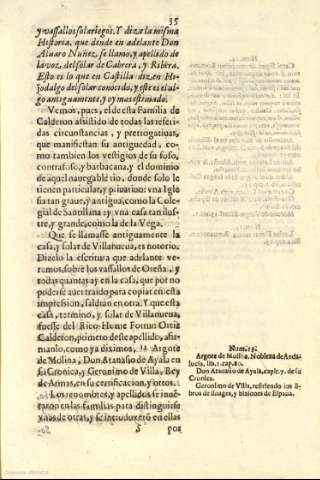 35
y vassallos solariegos. Y dize la misma
Historia, que dende en adelante Don
Aluaro Nuñez, se llamo, y apellido de
la voz, del solar de Cabrera, y Ribera,
Esto es lo que en Castilla dizen He-
jodalgo del solar conocido, y este es el al-
go antiguamente, y oy mas estimado.
Vemos, pues, el de esta Familia de
Calderon assistido de todas las refe-
das circunstancias, y prerrogatiuas,
que manifiestan su antiguedad, co-
mo tambien los vestigios de su foso,
contrafoso, y barbacana, y el dominio
de aquel nauegable rio, donde solo le
tienen particular, y priuatiuo: vna Igle
sia tan graue, y antigua, como la Cole-
gial de Santillana: y vna casa tan ilus-
tre, y grande, como la de la Vega.
Que se llamasse antiguamente la
casa, y solar de Villanueua, es notorio.
Dizelo la escritura que adelante ve-
remos, sobre los vassallos de Oreña, y
todas quantas ay en la casa, que por no
poderse auer traido para copiar en esta
impression, saldràn en otra. Y que esta
casa, termino, y solar de Villanueua,
fuesse del Rico Home Fortun Ortiz
Calderon, primero deste apellido, afir-
manlo, como ya diximos, Argote
de Molina, Don Atanasio de Ayala en
su Cronica, y Geronimo de Villa, Rey
de Armas, en su certificacion, y otros.
Los renombres, y apellidos se inue-
taron en las familias para distinguirse
vnas de otras, y se introduxeron en ellas
S
por
Num. 15.
Argote de Molina, Nobleza de Anda-
lucia, lib. 1. cap. 80.
Don Atanasio de Ayala, cap. 17. de su
Cronica.
Geronimo de Villa, refiriendo los li-
bros de linages, y blasones de España.